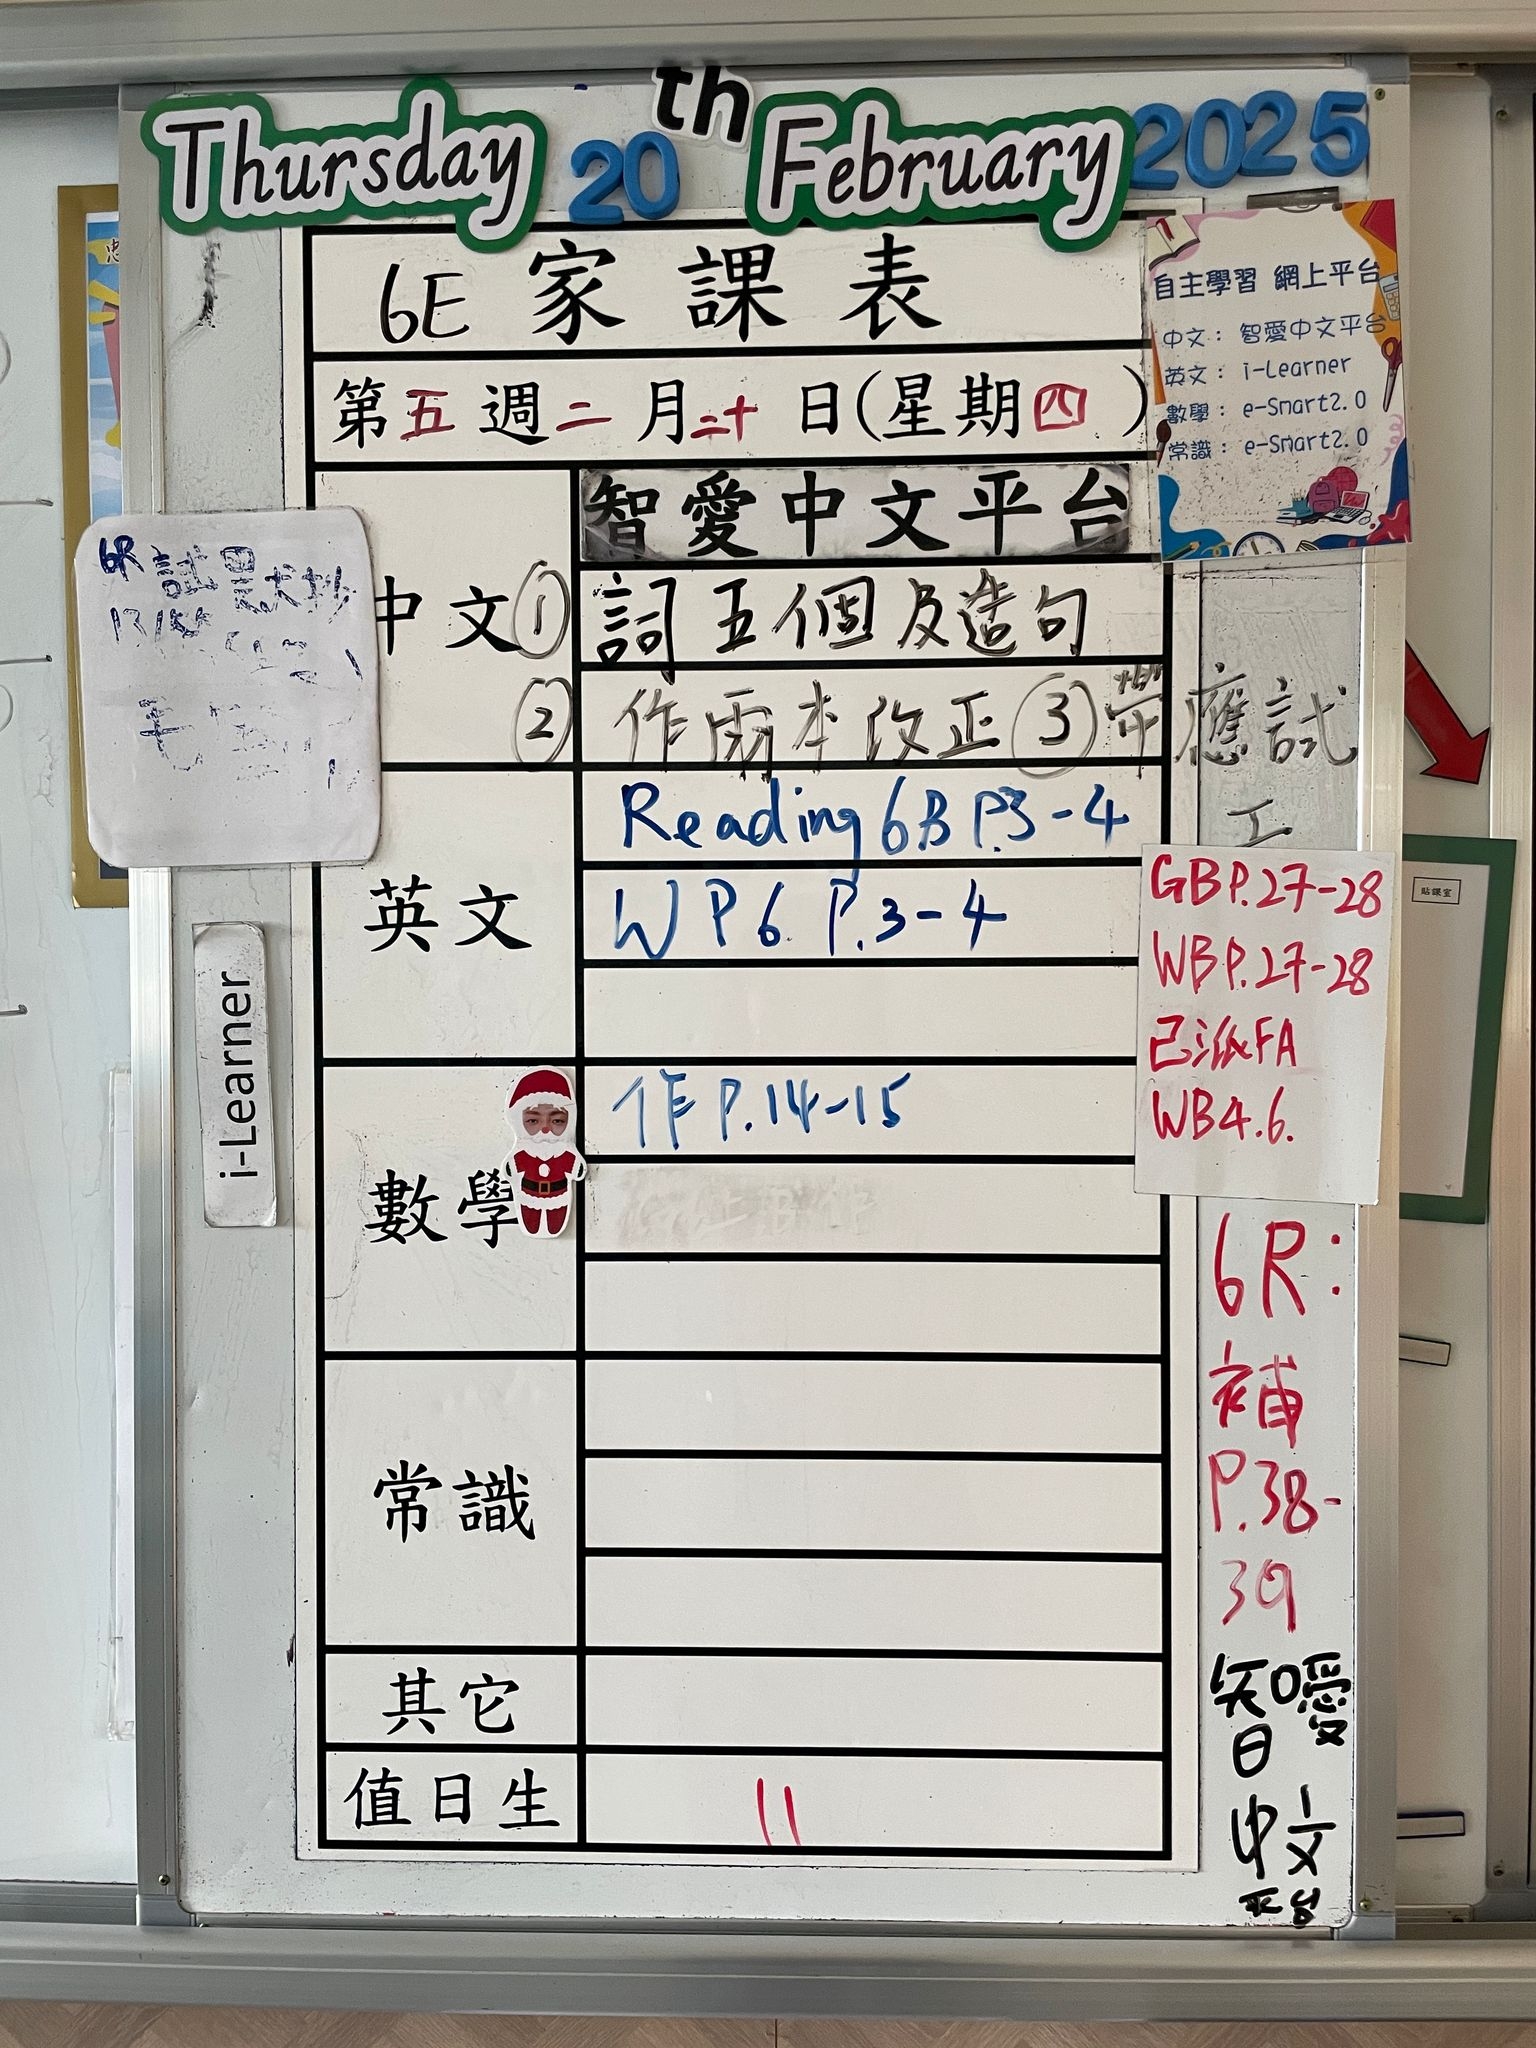 Thursday 20th February 2025
6E 家課表
第五週二月二十日(星期四)
自主學習 網上平台
中文：智愛中文平台
英文：i-Learner
數學：e-Smart2.0
常識：e-Smart2.0
智愛中文平台
中文 ① 詞五個及造句
② 作兩本改正 ③ 帶應試
工
6R
英文
Reading 6B P.3-4
WP6 P.3-4
i-Learner
GB P.27-28
WB P.27-28
已派FA
WB4.6.
數學
作 P.14-15
6R:
補
P.38-
39
常識
其它
值日生 11
智愛
中文
平台
貼課室